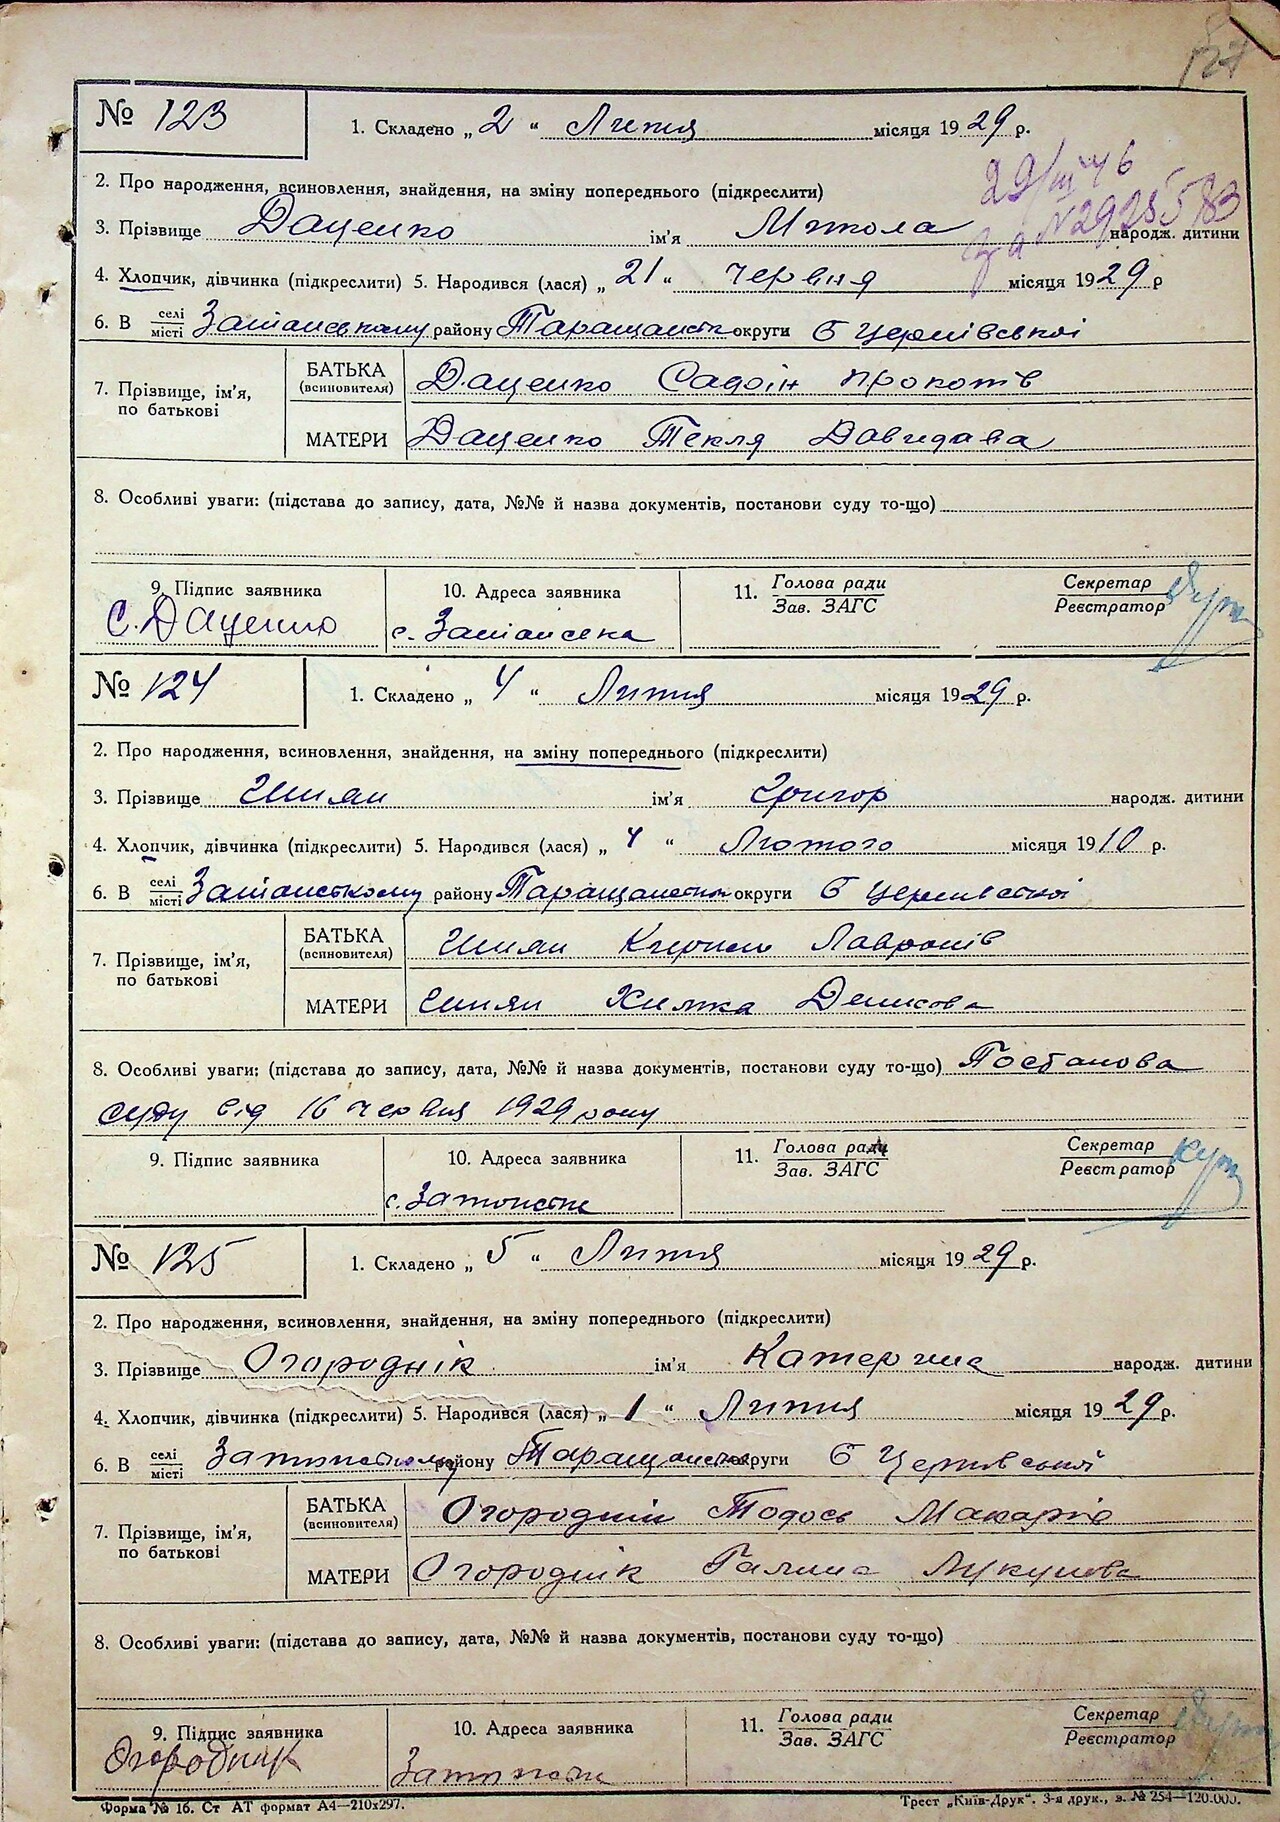 127
№ 123
1. Складено „ 2 “ Липня місяця 19 29 р.
2. Про народження, всиновлення, знайдення, на зміну попереднього (підкреслити)
29/III 46
3. Прізвище Даценко ім'я Микола народж. дитини
4. Хлопчик, дівчинка (підкреслити) 5. Народився (лася) „ 21 “ червня місяця 19 29 р
6. В селі місті району Таращанськ округи Б Церківської
7. Прізвище, ім'я, по батькові
БАТЬКА (всиновителя) Даценко Прокопів
МАТЕРИ Даценко Текля Давидова
8. Особливі уваги: (підстава до запису, дата, №№ й назва документів, постанови суду то-що)
9. Підпис заявника 10. Адреса заявника 11. Голова ради Зав. ЗАГС Секретар Реєстратор
С. Даценко с.
№ 124
1. Складено „ 4 “ Липня місяця 19 29 р.
2. Про народження, всиновлення, знайдення, на зміну попереднього (підкреслити)
3. Прізвище Шиян ім'я Григор народж. дитини
4. Хлопчик, дівчинка (підкреслити) 5. Народився (лася) „ 4 “ Лютого місяця 19 10 р.
6. В селі місті району округи Б Церківської
7. Прізвище, ім'я, по батькові
БАТЬКА (всиновителя) Шиян Кирило Лавронів
МАТЕРИ Шиян Химка Денисова
8. Особливі уваги: (підстава до запису, дата, №№ й назва документів, постанови суду то-що) Постанова
суду від 16 червня 1929 року
9. Підпис заявника 10. Адреса заявника 11. Голова ради Зав. ЗАГС Секретар Реєстратор
с.
№ 125
1. Складено „ 5 “ Липня місяця 19 29 р.
2. Про народження, всиновлення, знайдення, на зміну попереднього (підкреслити)
3. Прізвище Огороднік ім'я Катерина народж. дитини
4. Хлопчик, дівчинка (підкреслити) 5. Народився (лася) „ 1 “ Липня місяця 19 29 р.
6. В селі місті району округи Б Церківської
7. Прізвище, ім'я, по батькові
БАТЬКА (всиновителя) Огороднік Тодось Макарів
МАТЕРИ Огороднік Галина
8. Особливі уваги: (підстава до запису, дата, №№ й назва документів, постанови суду то-що)
9. Підпис заявника 10. Адреса заявника 11. Голова ради Зав. ЗАГС Секретар Реєстратор
Огородник
Форма № 16. Ст АТ формат А4—210х297. Трест „Київ-Друк“. 3-я друк., в. № 254—120.000.